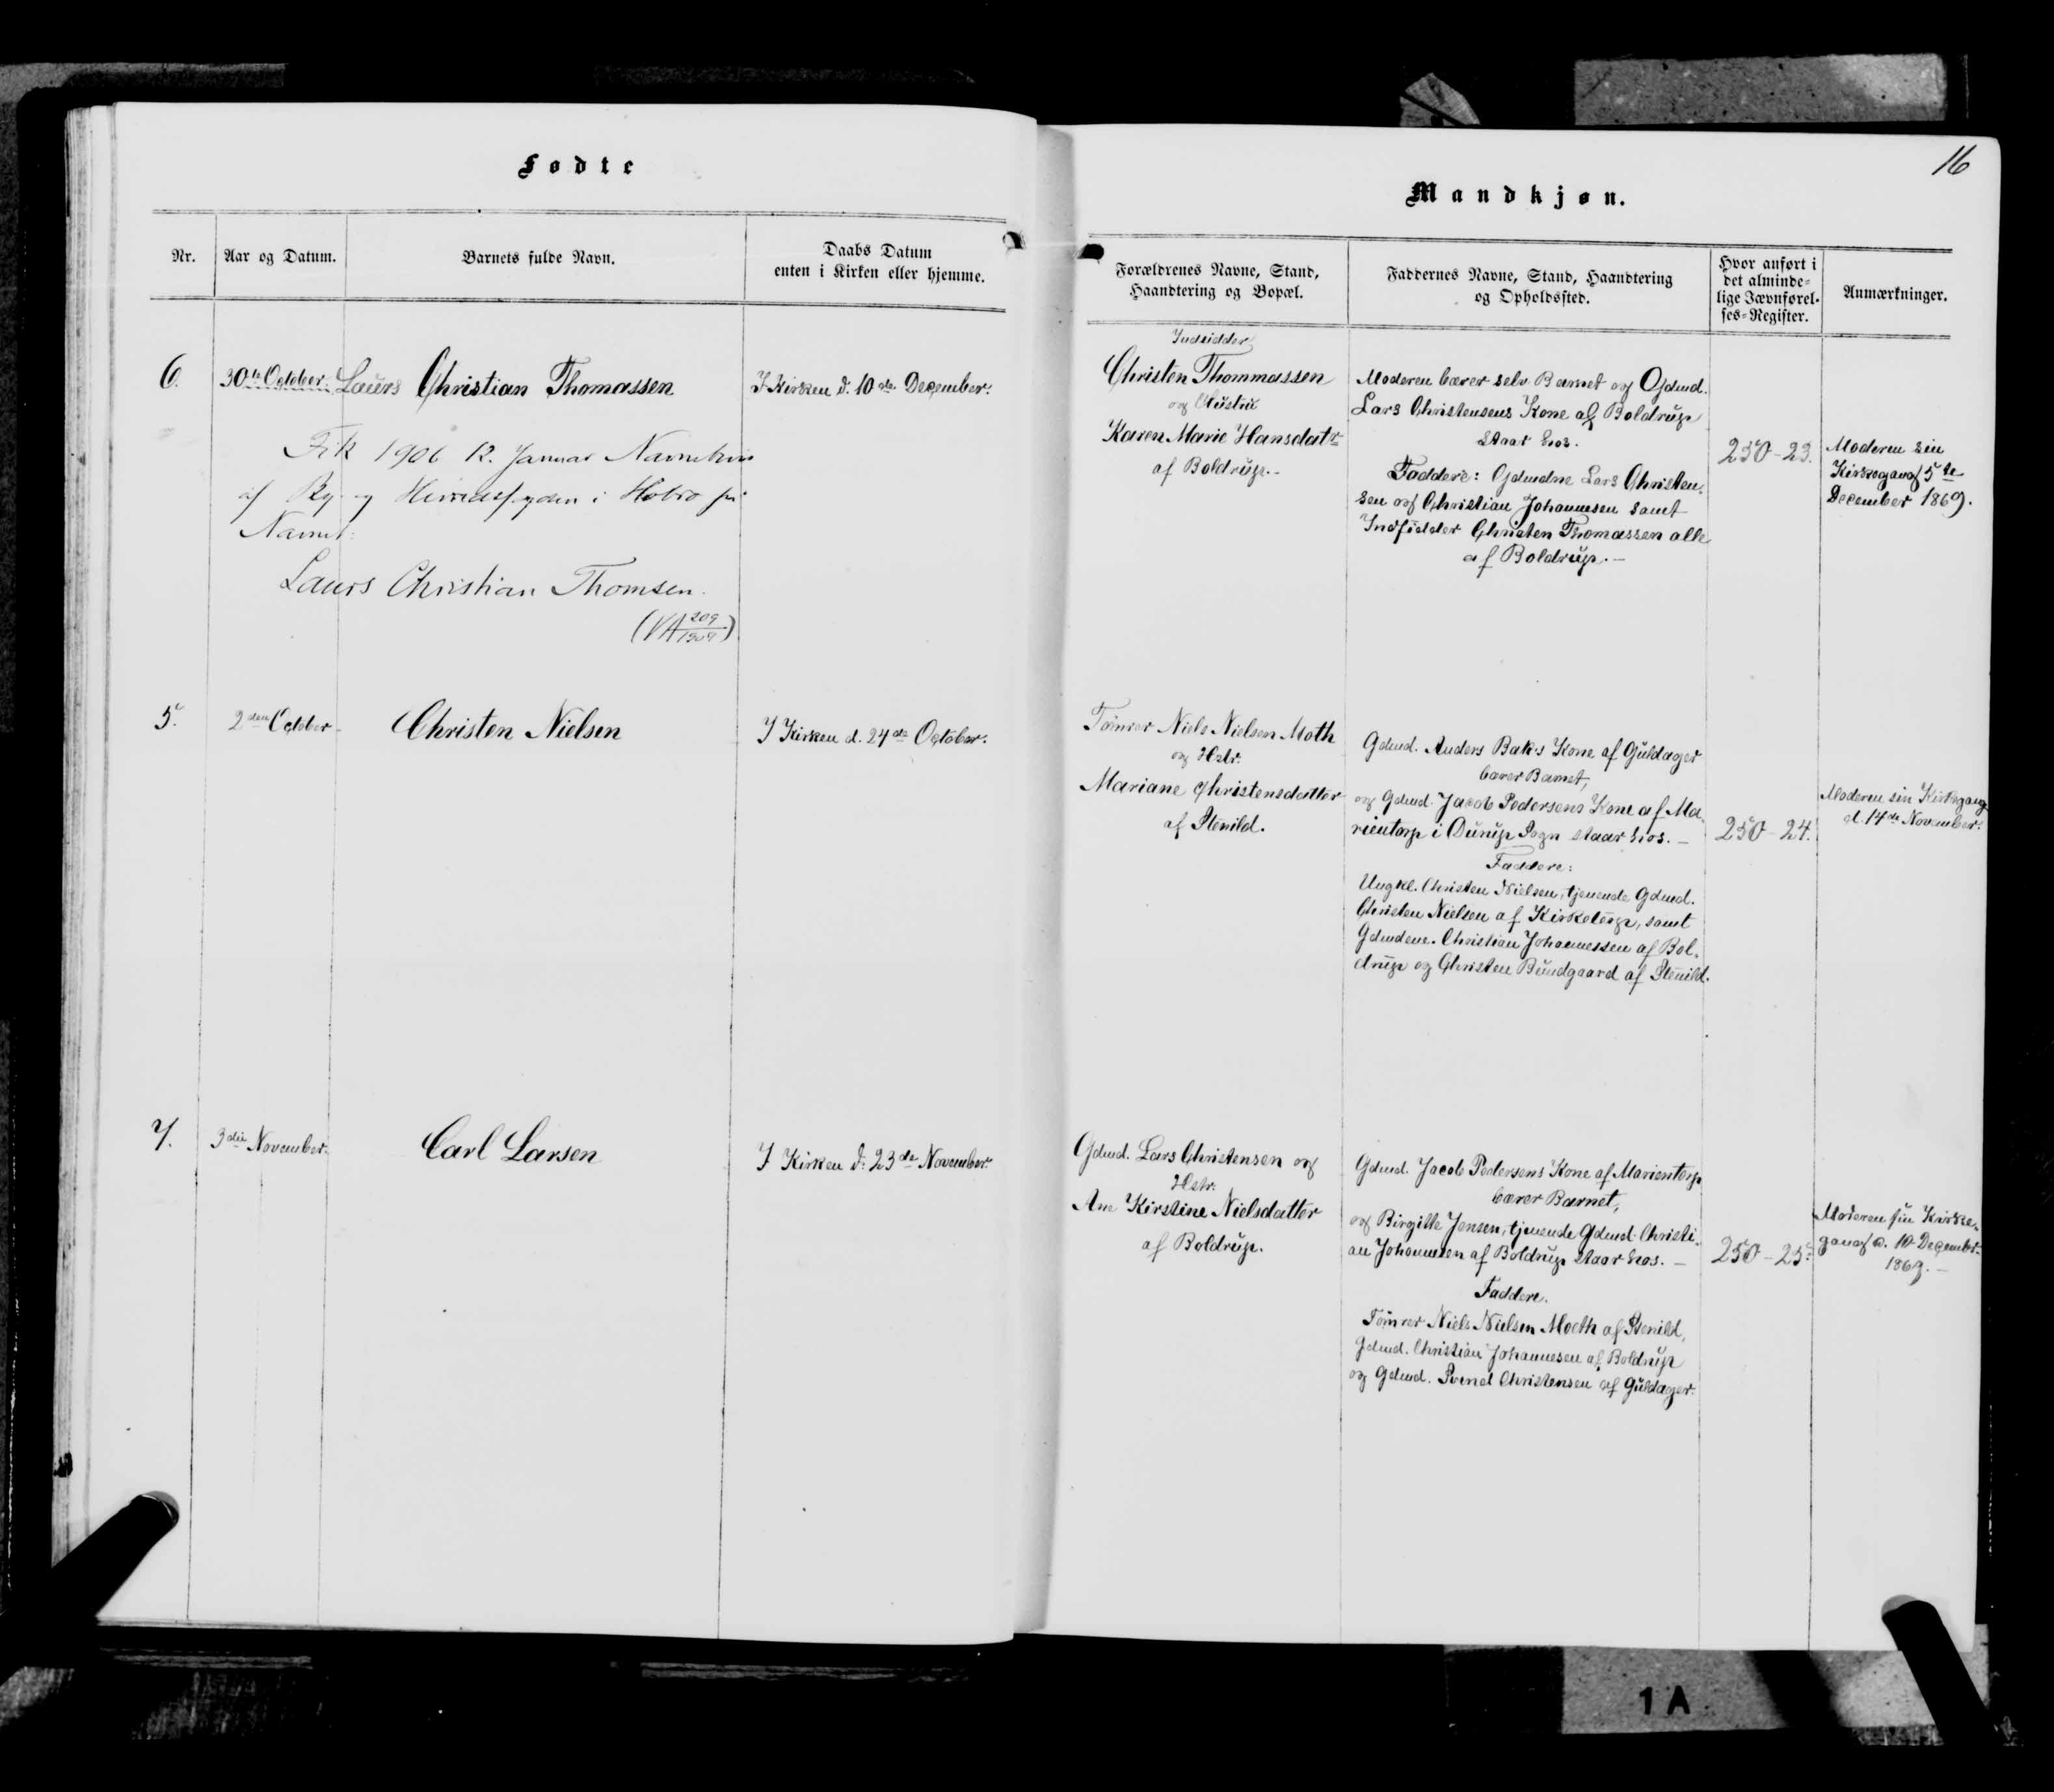 Fødte
Nr.
Aar og Datum.
Barnets fulde Navn.
Daabs Datum
enten i Kirken eller hjemme.
6.
30te October.
Laurs Christian Thomassen
I Kirken d. 10de December.
Fik 1906 12. Januar Navnebevis
af By- og Herredsfogden i Hobro på
Navnet:
Laurs Christian Thomsen.
5.
2den October
Christen Nielsen
I Kirken d. 24de October.
7.
3die November.
Carl Larsen
I Kirken d: 23de November.
16
Mandkjøn.
Forældrenes Navne, Stand,
Haandtering og Bopæl.
Faddernes Navne, Stand, Haandtering
og Opholdssted.
Hvor anført i
det alminde-
lige Jævnførel-
ses-Register.
Anmærkninger.
Indsidder
Christen Thommassen
og Hustru
Karen Marie Hansdatr
af Boldrup.-
Moderen bærer selv Barnet og Gdmd.
Lars Christensens Kone af Boldrup
staar hos.
Faddere: Gdmdne Lars Christen-
sen og Christian Johannesen samt
Indsidder Christen Thomassen alle
af Boldrup.-
250-23.
Moderen sin
Kirkegang 5te
December 1869.
Tømrer Niels Nielsen Moth
og Hstr.
Mariane Christensdatter
af Stenild.
Gdmd. Anders Baks Kone af Guldager
bærer Barnet,
og Gdmd. Jacob Pedersens Kone af Ma-
rientorp i Durup Sogn staar hos.-
Faddere:
Ungkl. Christen Nielsen, tjenende Gdmd.
Christen Nielsen af Kirketerp, samt
Gdmdene. Christian Johannessen af Bol-
drup og Christen Bundgaard af Stenild.
250-24.
Moderen sin Kirkegang
d. 14de November.
Gdmd. Lars Christensen og
Hstr.
Ane Kirstine Nielsdatter
af Boldrup.
Gdmd. Jacob Pedersens Kone af Marientorp
bærer Barnet,
og Birgitte Jensen, tjenende Gdmd. Christi-
an Johannesen af Boldrup staar hos.-
Faddere.
Tømrer Niels Nielsen Moeth af Stenild,
Gdmd. Christian Johannesen af Boldrup
og Gdmd. Svend Christensen af Guldager.
250-25.
Moderen sin Kirke-
gang d. 10 December
1869.-
1 A